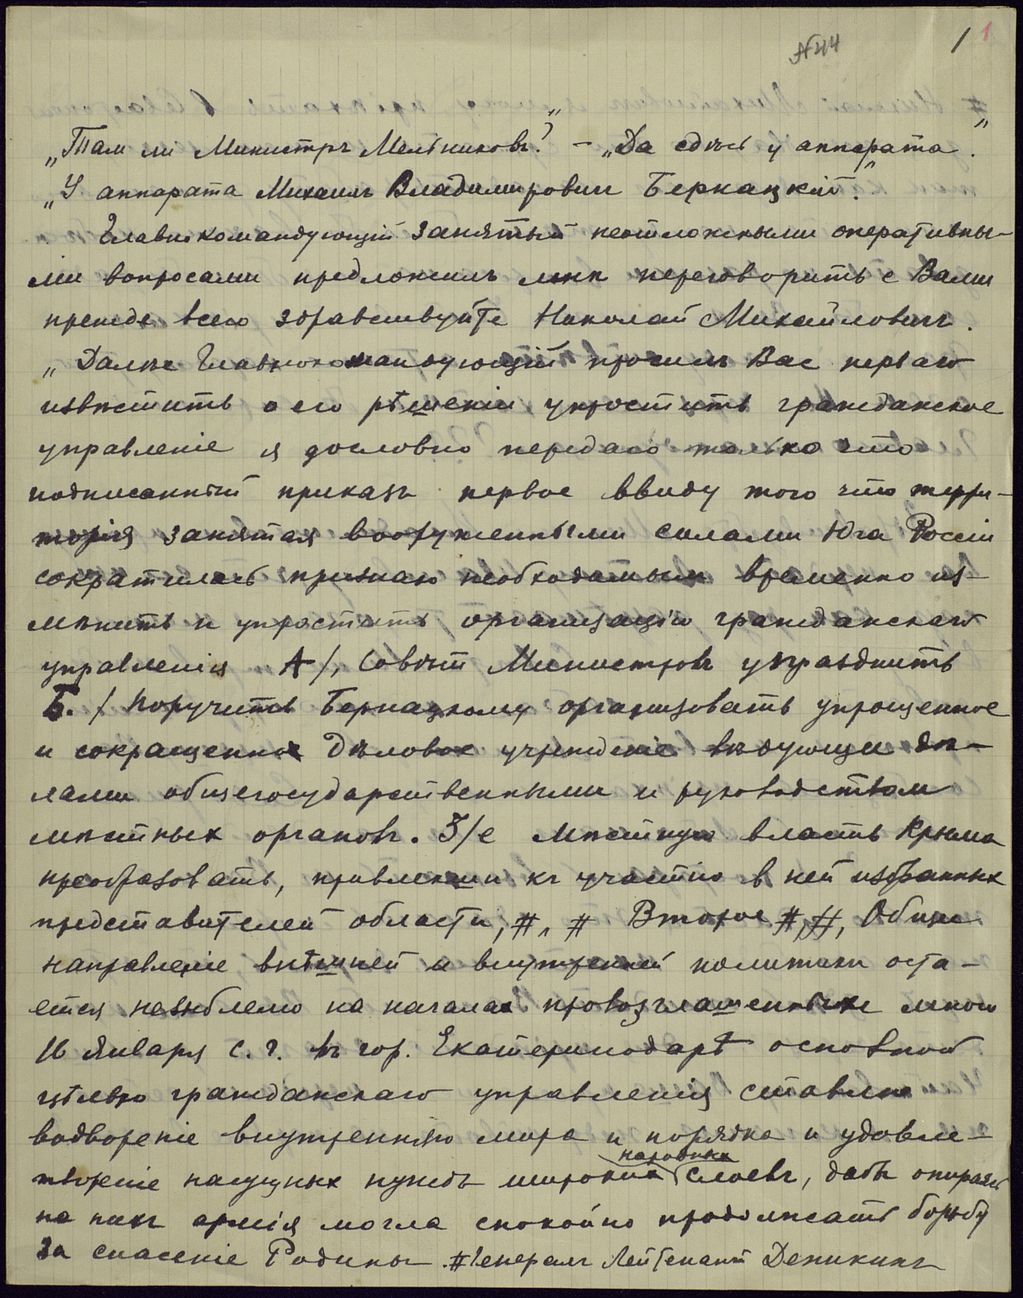 №44
1 1
„Там ли Министръ Мельниковъ?“ – „Да сдѣсь у аппарата“.
„У аппарата Михаилъ Владимирович Бернацкій“.
Главнокомандующій занятый неотложными оперативны-
ми вопросами предложилъ мнѣ переговорить с Вами
прежде всего здравствуйте Николай Михайловичъ.
„Далѣе Главнокомандующій просилъ Вас перваго
извѣстить о его рѣшеніи упростить гражданское
управленіе я дословно передаю только что
подписанный приказъ первое ввиду того что терри-
торія занятая вооруженными силами Юга Россіи
сократилась признаю необходимым временно из-
мѣнить и упростить организацію гражданскаго
управленія А/, Совѣт Министровъ упразднить
Б. / Поручить Бернацкому организовать упрощенное
и сокращенное дѣловое учрежденіе вѣдующи дѣ-
лами общегосударственными и руководством
мѣстных органовъ. 3/е мѣстную власть Крыма
преобразовать, привлекши къ участію в ней избранных
представителей области, #, # Второе #,#, Общее
направленіе внѣшней и внутренней политики оста-
ется незыблемо на началах провозглашенных мною
16 Января с. г. въ гор. Екатеринодарѣ основной
цѣлью гражданскаго управленія ставлю
водвореніе внутренняго мира и порядка и удовле-
твореніе насущных нуждъ широких народных слоевъ, дабы опираясь
на них армія могла спокойно продолжать борьбу
за спасеніе Родины. # Генералъ Лейтенант Деникинъ